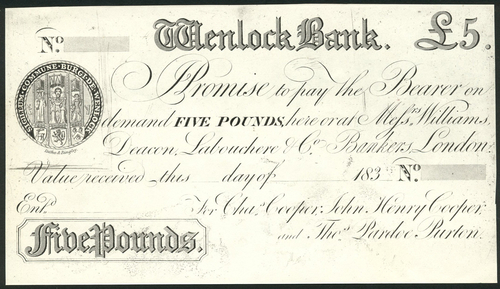 Wenlock Bank. £5.
No.
SIGILLUM · COMMUNE · BURGI DE WENLOCK
I Promise to pay the Bearer on
demand FIVE POUNDS, here or at Messrs. Williams,
Deacon, Labouchere & Co. Bankers, London;
Value received this day of 183 No.
Entd. For Chas. Cooper, John Henry Cooper,
and Thos. Pardoe Purton.
Five Pounds.